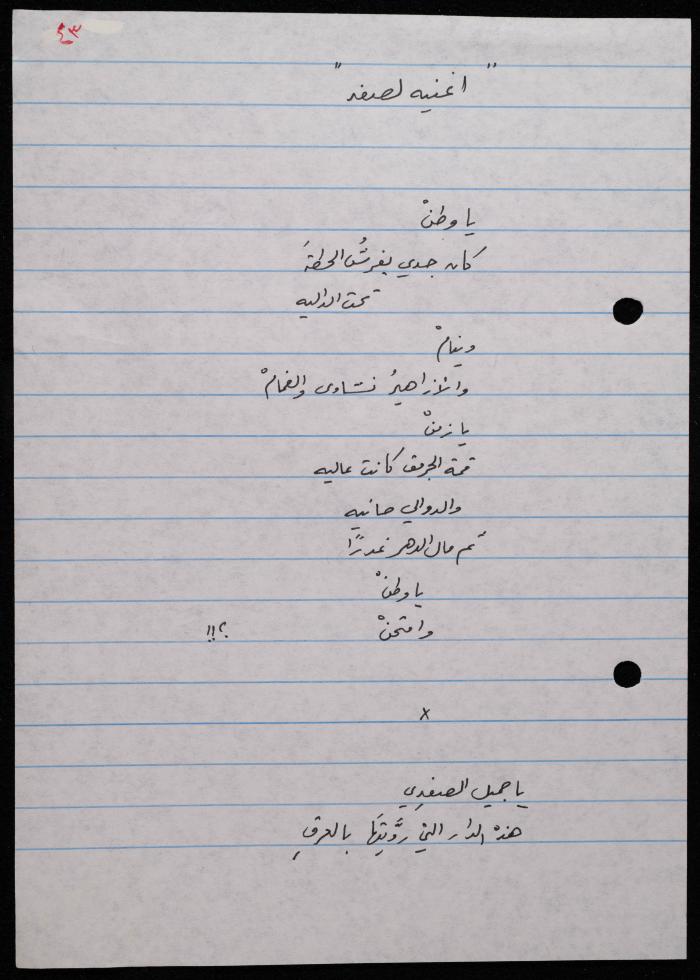 ٤٣
" اغنيه لصفد "
يا وطنْ
كان جدي يفرشُ الحطةَ
تحت الداليه
وينامْ
والأزاهيرُ نشاوى والغمامْ
يا زمنْ
قمة الجرمق كانت عاليه
والدوالي حانيه
ثم مال الدهر غدرًا
يا وطنْ
وامتحنْ ؟!!
x
يا جميل الصفدِي
هذهْ الدار التي روَّيتِهَا بالعرقِ